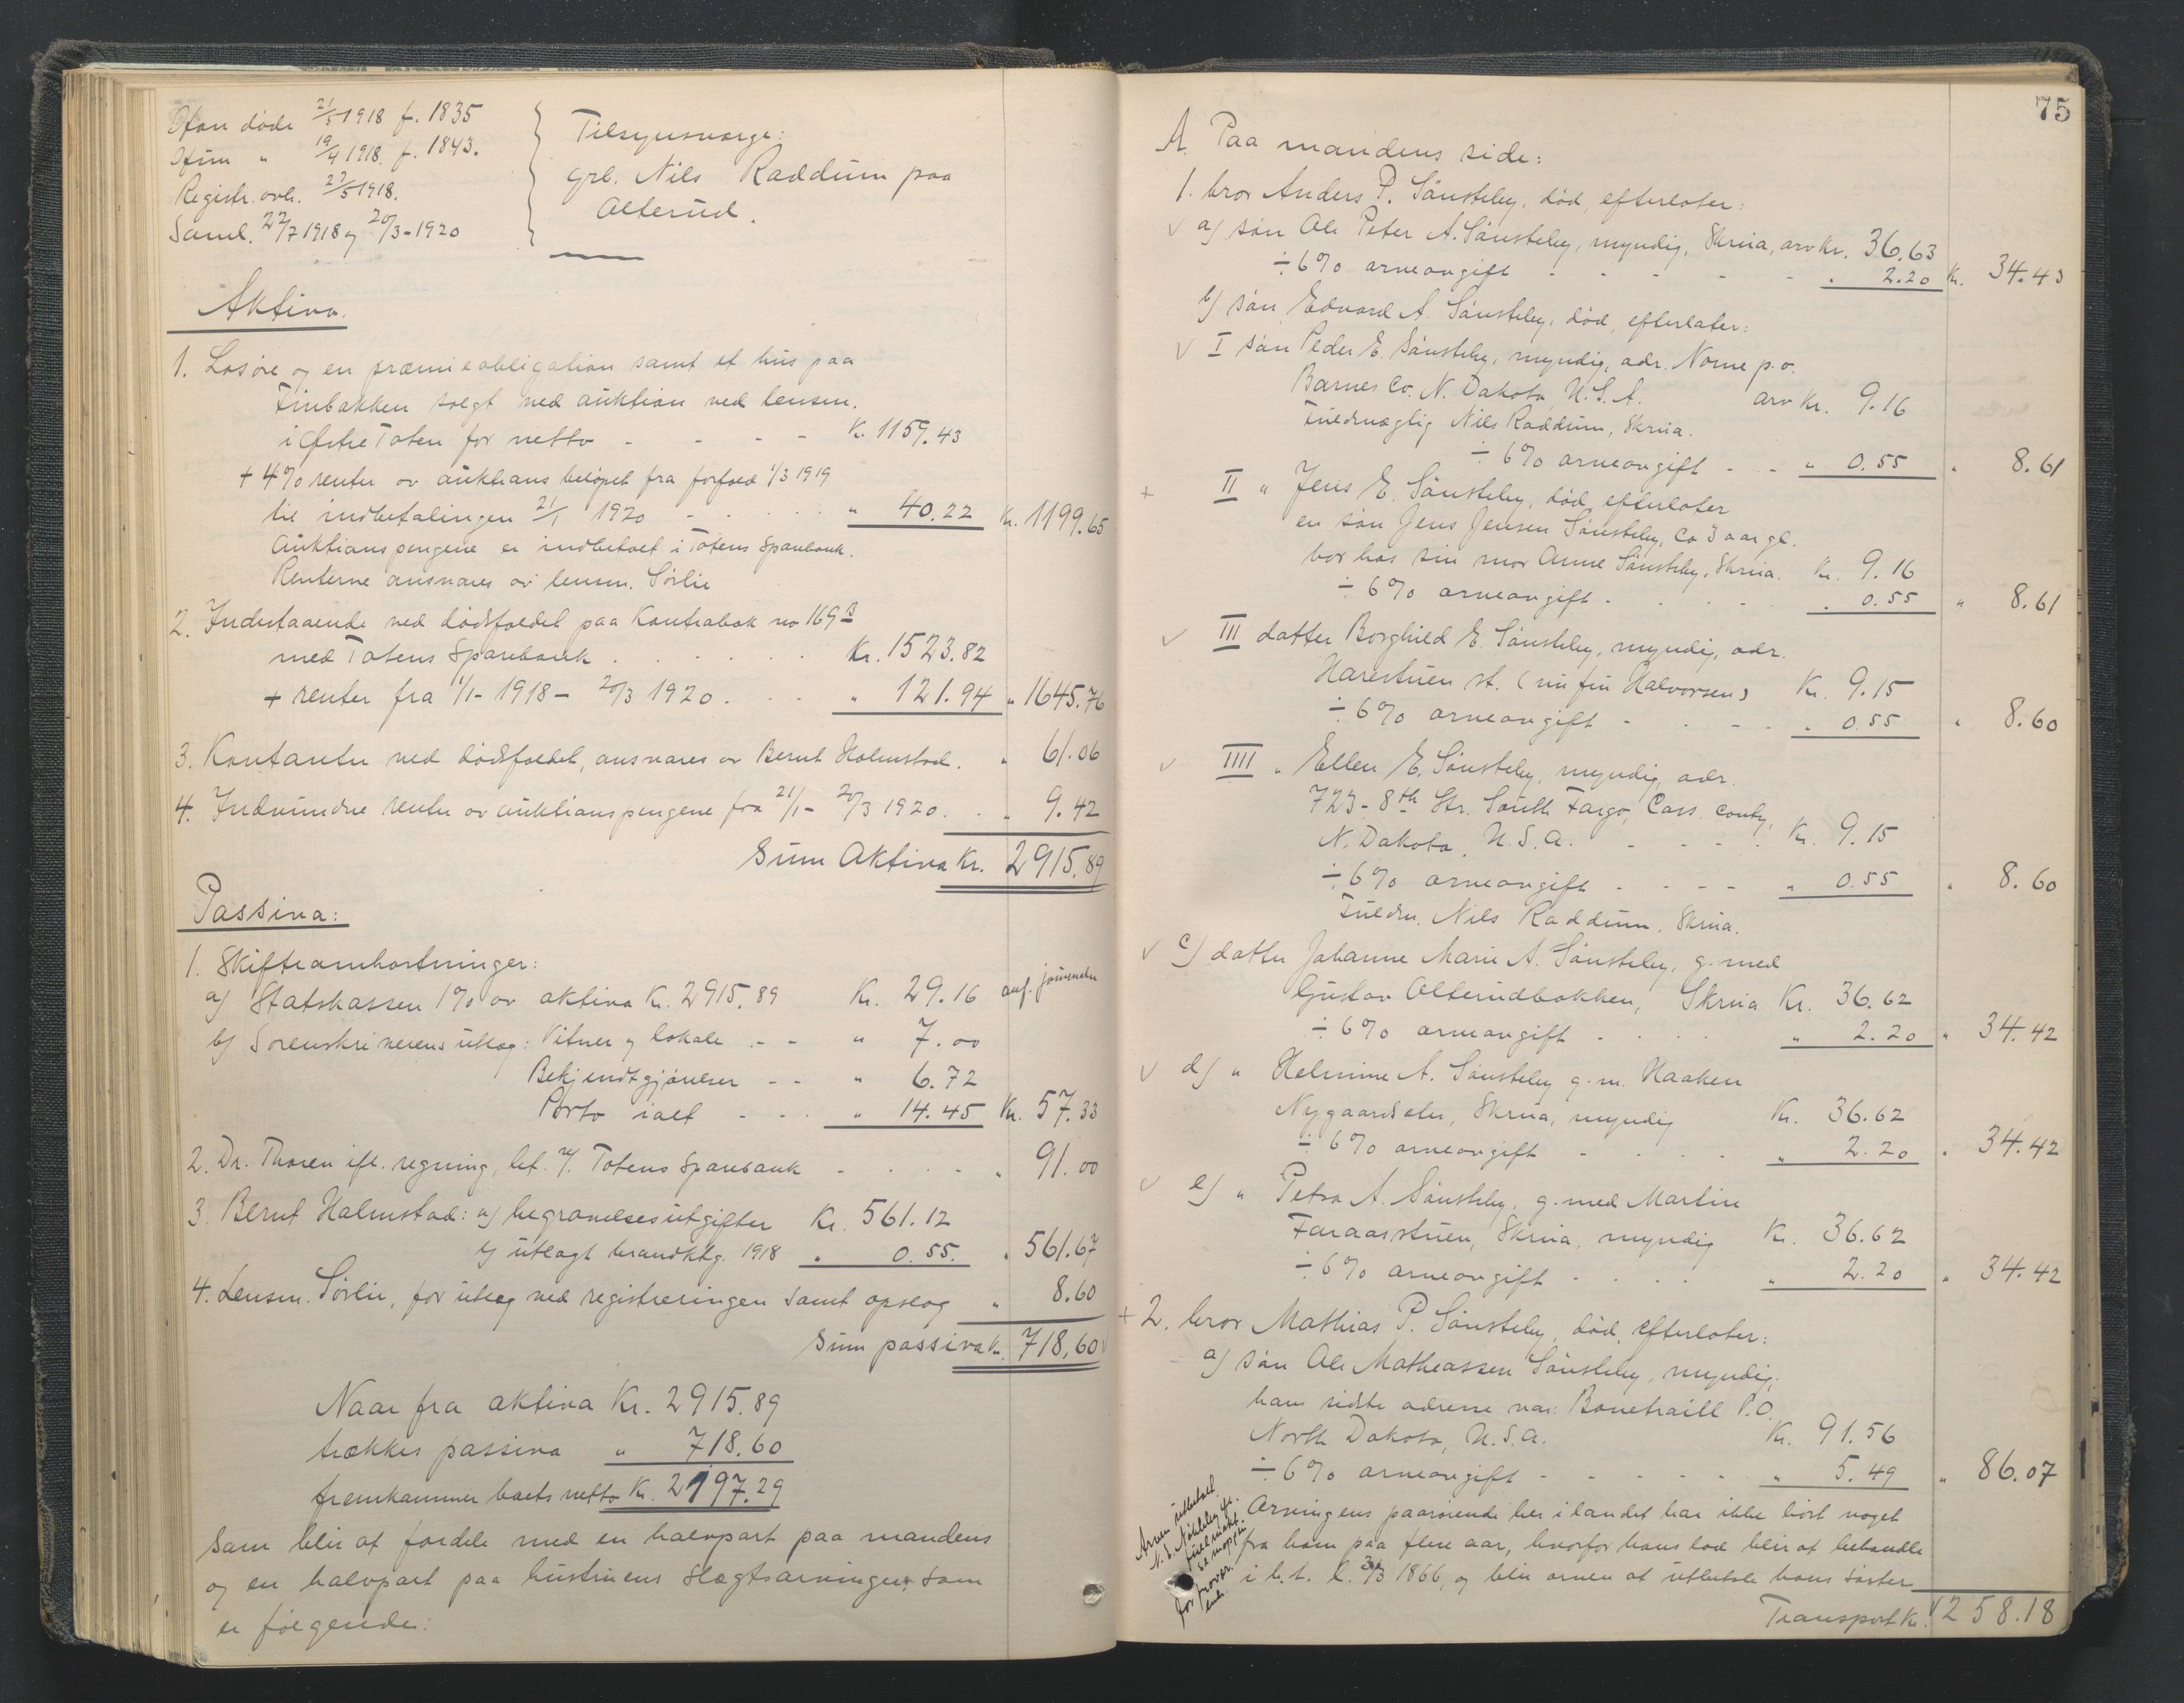 Han døde 21/5 1918 f. 1835
Hun " 19/4 1918. f. 1843.
Registr. avh. 27/5 1918.
Saml. 22/7 1918 og 20/3-1920
Tilsynsverge:
grb. Nils Raddum paa
Alterud.
Aktiva.
1. Løsøre og en præmieobligation samt et hus paa
Finbakken solgt ved auktion ved lensm.
i Østre Toten for netto - - - - K. 1159.43
+ 4% renter av auktionsbeløpet fra forfald 1/3 1919
til indbetalingen 21/1 1920 - - - - " 40.22 Kr. 1199.65
Auktionspengene er indbetalt i Totens Sparebank.
Renterne ansvares av lensm. Sørlie
2. Indestaaende ved dødsfaldet paa Kontrabok no 169 B
med Totens Sparebank . . . . . . Kr. 1523.82
+ renter fra 1/1-1918 - 20/3 1920 . . . " 121.94 " 1645.76
3. Kontanter ved dødsfaldet, ansvares av Bernt Holmstad. " 61.06
4. Indvundne renter av auktionspengene fra 21/1 - 20/3 1920. . " 9.42
Sum Aktiva Kr. 2915.89
Passiva:
1. Skifteomkostninger:
a) Statskassen 1% av aktiva Kr. 2915.89 Kr. 29.16 anf. journalen
b) Sorenskriverens utlæg: Vitner og lokale - - " 7.00
Bekjendtgjørelser - - " 6.72
Porto ialt - - - " 14.45 Kr. 57.33
2. Dr. Thoren ifl. regning, bet. Totens Sparebank - - - - " 91.00
3. Bernt Holmstad: a) begravelsesutgifter Kr. 561.12
b) utlagt brandktg. 1918 " 0.55. " 561.67
4. Lensm. Sørlie, for utlæg ved registreringen samt opslag " 8.60
Sum passiva Kr. 718.60
Naar fra aktiva Kr. 2915.89
trækkes passiva " 718.60
fremkommer boets netto Kr. 2197.29
som blir at fordele med en halvpart paa mandens
og en halvpart paa hustruens slegtsarvinger, som
er følgende:
75
A. Paa mandens side:
1. bror Anders P. Sønsteby, død, efterlater:
a) søn Ole Peter A. Sønsteby, myndig, Skreia, arv Kr. 36.63
÷ 6% arveavgift - - - - - " 2.20 Kr. 34.43
b) søn Edvard A. Sønsteby, død, efterlater:
I søn Peder E. Sønsteby, myndig, adr. Nome p.o.
Barnes Co. N. Dakota, U.S.A. arv Kr. 9.16
Fuldmægtig Nils Raddum, Skreia.
÷ 6% arveavgift - - " 0.55 " 8.61
+ II " Jens E. Sønsteby, død, efterlater
en søn Jens Jensen Sønsteby, ca 3 aar gl.
bor hos sin mor Anne Sønsteby, Skreia. Kr. 9.16
÷ 6% arveavgift - . . . . " 0.55 " 8.61
III datter Borghild E. Sønsteby, myndig, adr.
Harestuen st. (nu fru Halvorsen) Kr. 9.15
÷ 6% arveavgift - - - - " 0.55 " 8.60
IIII " Ellen E. Sønsteby, myndig, adr.
723-8th Str. South Fargo, Cass. conty,
N. Dakota, U.S.A. - - - - Kr. 9.15
÷ 6% arveavgift - - - - " 0.55 " 8.60
Fuldm. Nils Raddum. Skreia.
c) datter Johanne Marie A. Sønsteby, g. med
Gustav Alterudbakken, Skreia Kr. 36.62
÷ 6% arveavgift - . . . " 2.20 " 34.42
d) " Helmine A. Sønsteby g.m. Haaken
Nygaardseter, Skreia, myndig Kr. 36.62
÷ 6% arveavgift - . . . " 2.20 " 34.42
e) " Petra A. Sønsteby, g. med Martin
Faraasstuen, Skreia, myndig Kr. 36.62
÷ 6% arveavgift - . . . " 2.20 " 34.42
+ 2. bror Mathias P. Sønsteby, død, efterlater:
a) søn Ole Matheassen Sønsteby, myndig,
hans sidste adresse var: Bonetraill P.O.
North Dakota, U.S.A. Kr. 91.56
÷ 6% arveavgift - - - - - " 5.49 " 86.07
Arvingens paarørende her i landet har ikke hørt noget
fra ham paa flere aar, hvorfor hans lod blir at behandle
i h. t. l. 3/3 1866, og blir arven at utbetale hans søster
Arven utbetalt
Transport Kr. 258.18